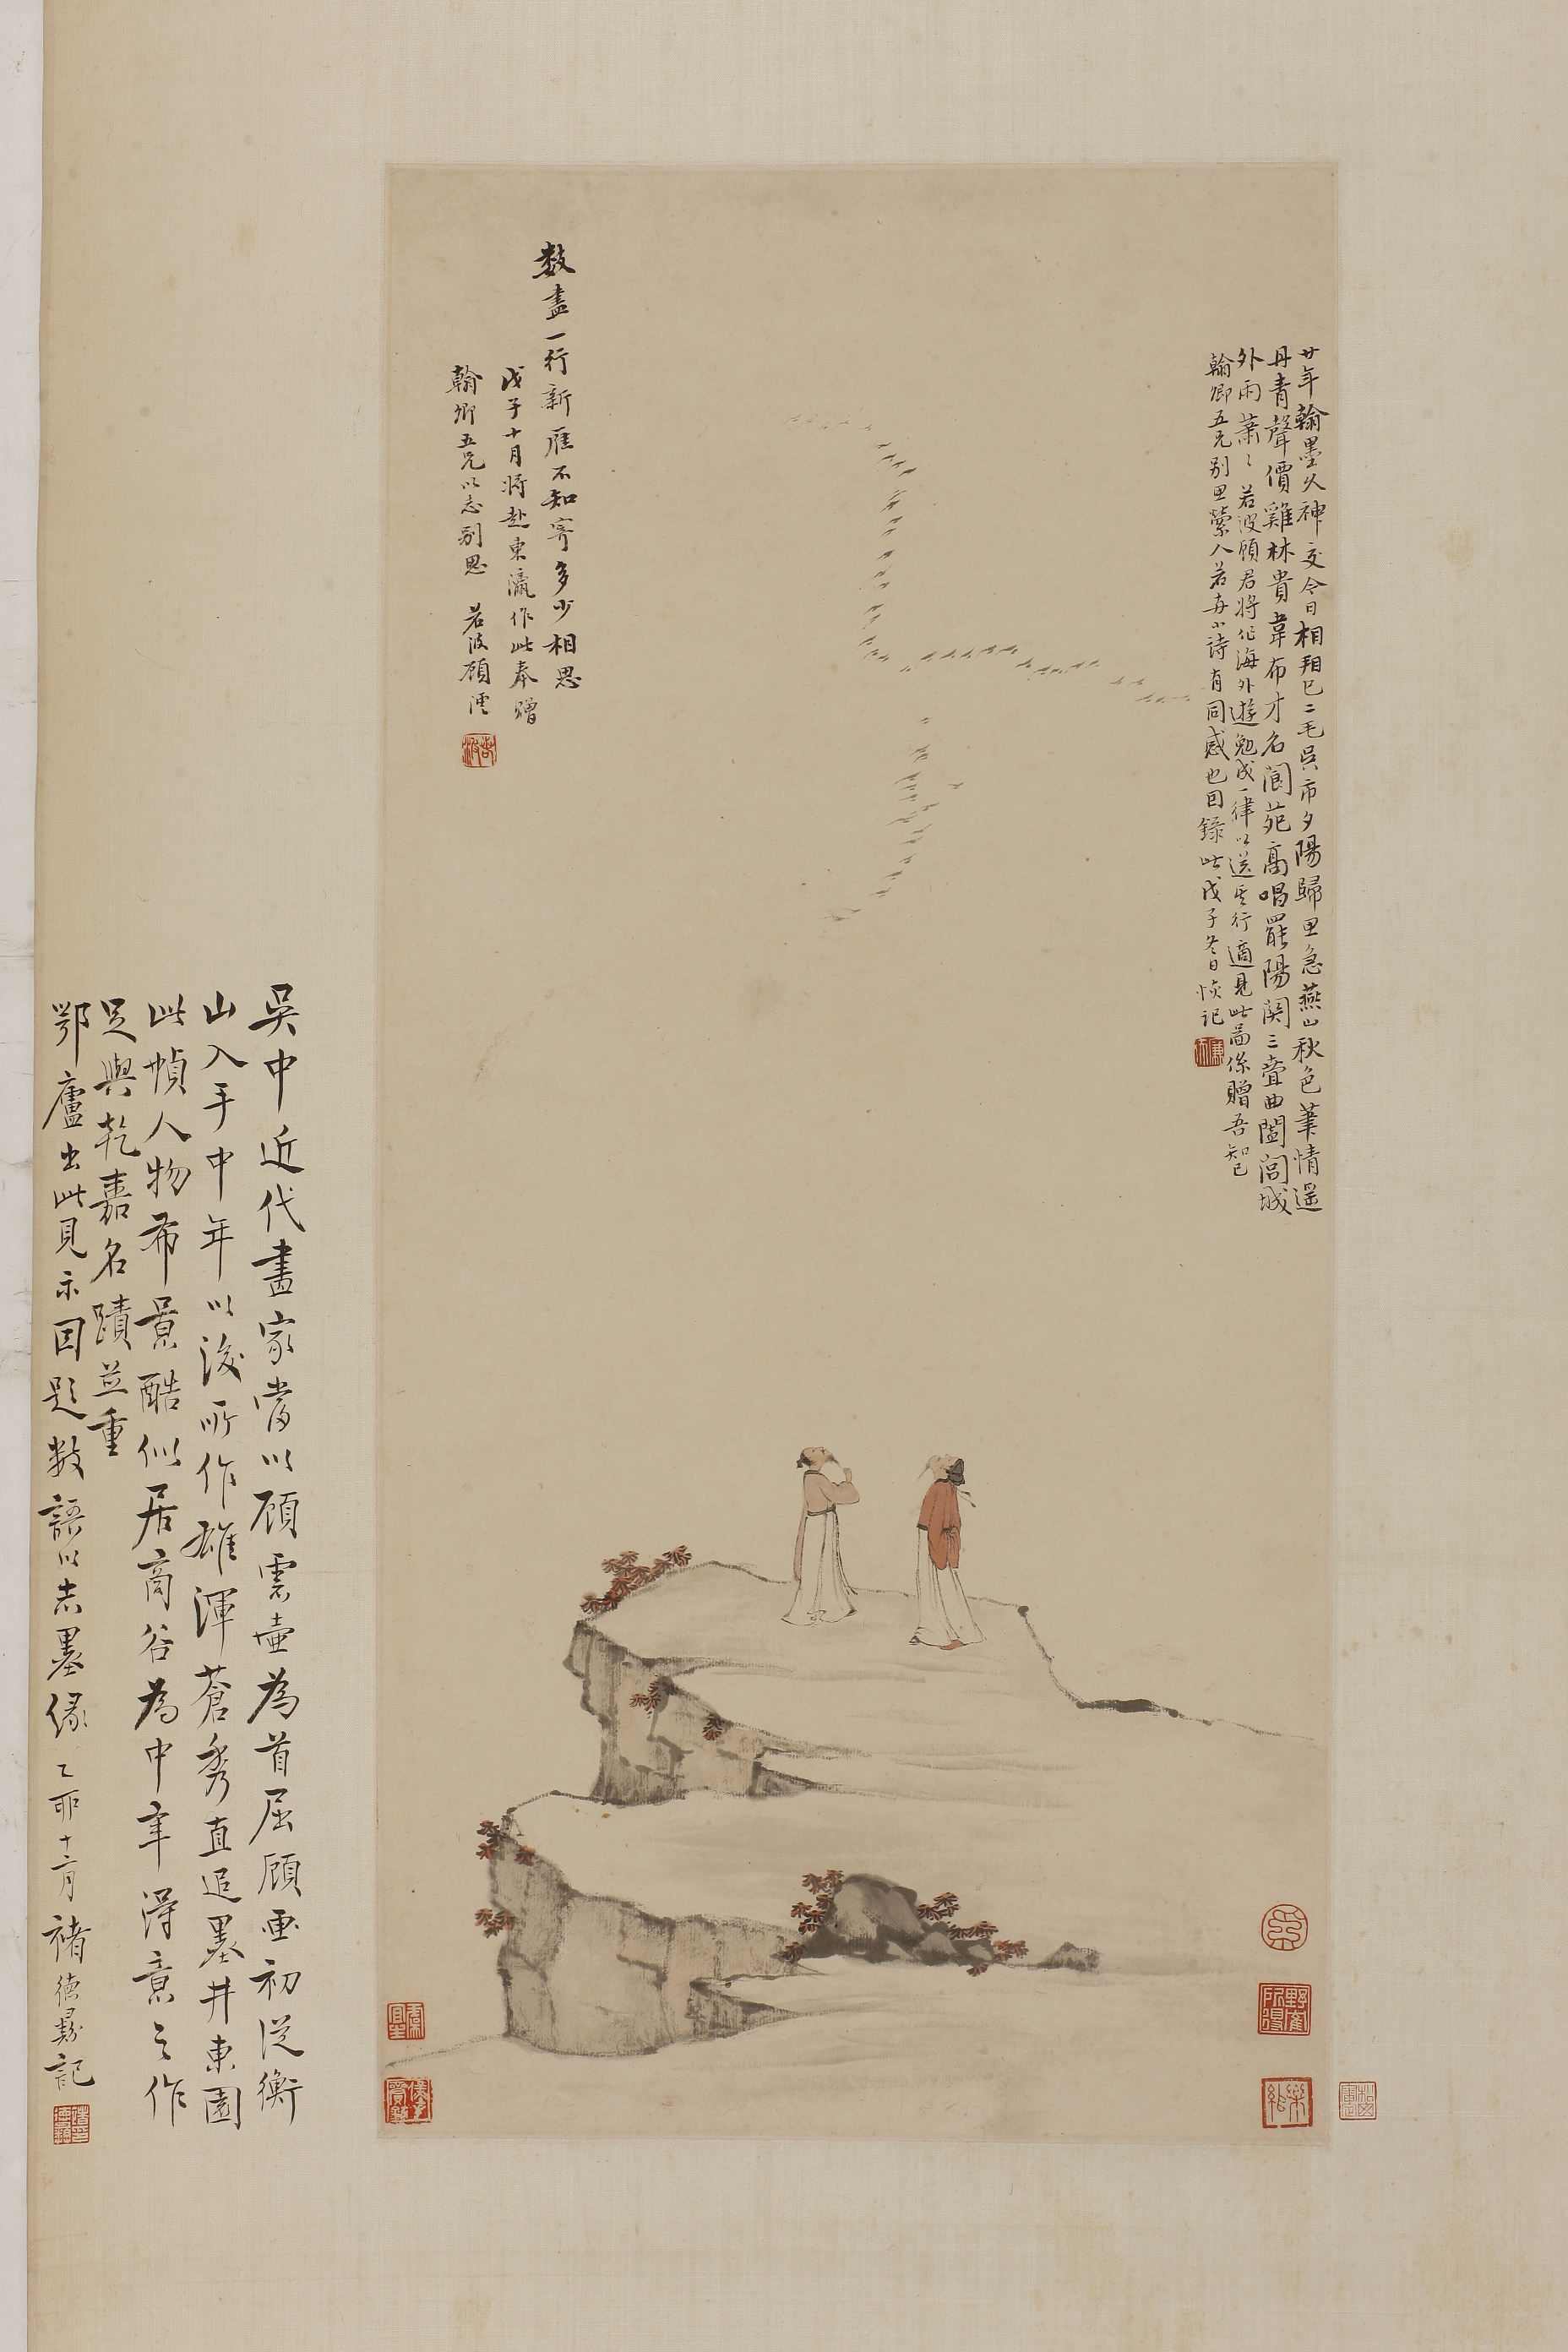 廿年翰墨久神交今日相chain已二毛吳市夕陽歸思急燕山秋色筆情遥
丹青聲價雞林貴韋布才名閬苑高唱罷陽關三疊曲闔閭城
外雨蕭〻若波顧君將作海外遊勉成一律以送其行適見此畫係贈吾知己
翰卿五兄别思縈人若每小詩有同感也因錄此戊子冬日 記
數盡一行新雁不知寄多少相思
戊子十月將赴東瀛作此奉贈
翰卿五兄以志别思 若波顧澐
若波
吳中近代畫家當以顧雲壺為首屈顧画初從衡
山入手中年以後所作雄渾蒼秀直追墨井東園
此幀人物布景酷似居商谷為中年得意之作
足與乾嘉名蹟並重
鄂廬出此見示因題數語以志墨緣乙卯十二月褚德彝記